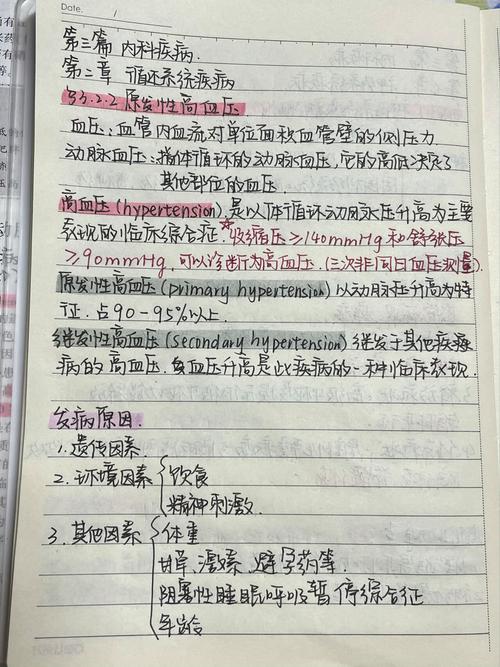 Date. 1
第三篇 内科疾病.
第二章 循环系统疾病
§3.2.2 原发性高血压
血压:血管内血流对单位面积血管壁的侧压力
动脉血压:指体循环的动脉血压,它的高低决定了
其他部位的血压
高血压(hypertension),是以体循环动脉压升高为主要
表现的临床综合征.☆收缩压≥140mmHg和舒张压
≥90mmHg,可以诊断为高血压.(三次非同日血压测量).
原发性高血压(primary hypertension)以动脉压升高为特
征.占90-95%以上.
继发性高血压(secondary hypertension)继发于其他疾病
病的高血压.血压升高是此疾病的一种临床表现.
发病原因.
1.遗传因素.
2.环境因素{饮食
精神刺激.
3.其他因素{体重
甘草、激素、避孕药等.
阻塞性睡眠呼吸暂停综合征
年龄